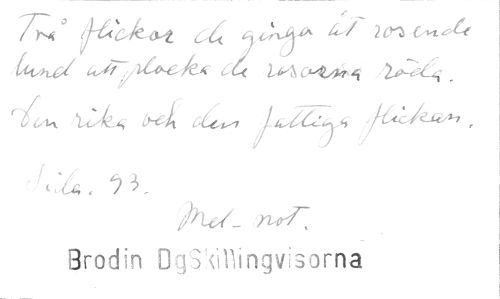 Två flickor de ginga åt rosende
lund att plocka de rosorna röda.
Den rika och den fattiga flickan.
Sida. 93.
Mel-not.
Brodin DgSkillingvisorna